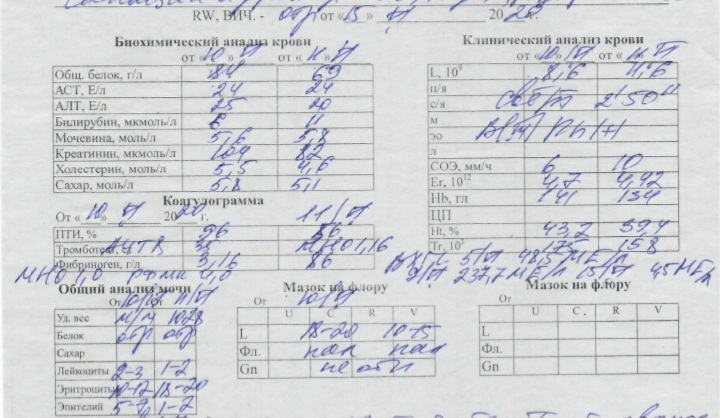 RW, ВИЧ. - отр от « 15 » 20 20 г.
Биохимический анализ крови
от « 10 » от « 11 »
Общ. белок, г/л 84 69
АСТ, Е/л 24 24
АЛТ, Е/л 25 20
Билирубин, мкмоль/л 8 11
Мочевина, моль/л 5,6 5,8
Креатинин, мкмоль/л 104 82
Холестерин, моль/л 5,5 4,6
Сахар, моль/л 5,8 5,1
Клинический анализ крови
от « 10 » от « 11 »
L, 10⁹ 8,6 11,6
п/я
с/я 2' 50"
м
эо Rh (+)
л
СОЭ, мм/ч 6 10
Er, 10¹² 4,7 4,42
Hb, гл 141 134
ЦП
Ht, % 43,2 39,4
Tr, 10⁹ 175 158
Коагулограмма
От « 10 » 20 20 г. 11
ПТИ, % 96 86
Тромботест, с АЧТВ МНО 1,16
Фибриноген, г/л 3,16 86
МНО 1,0 РФМК 4,0
ХГЧ 48,5 МЕ/л
237,7 МЕ/л 15 45 МЕ/л
Общий анализ мочи
От От
Уд. вес м/м 1028
Белок отр отр
Сахар
Лейкоциты 2-3 1-2
Эритроциты 10-12 18-20
Эпителий 5-7 1-2
Мазок на флору
От 10
U C R V
L 18-20 10-15
Фл. пал пал
Gn не обн
Мазок на флору
От
U C . R V
L
Фл.
Gn